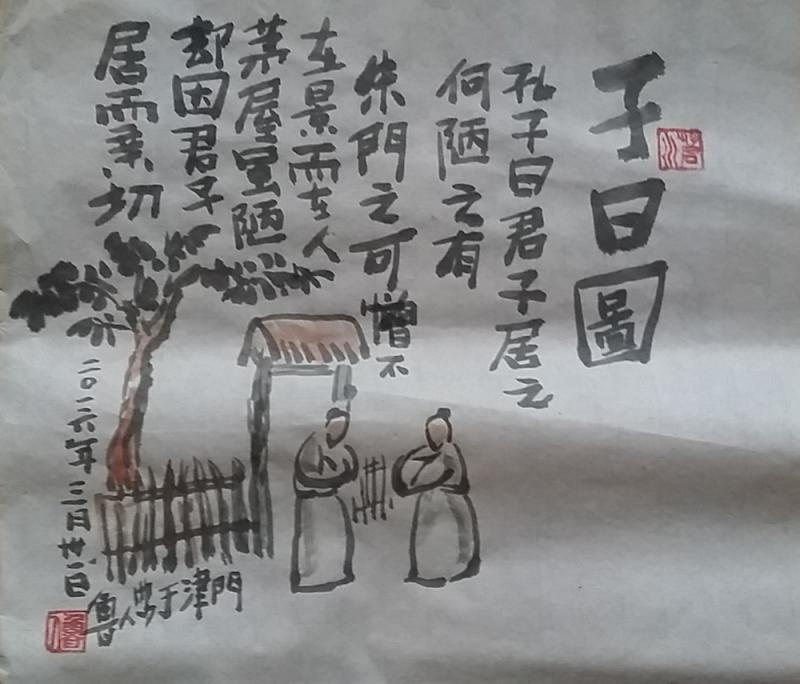 子曰圖
孔子曰君子居之
何陋之有
朱門之可憎不
在景而在人
茅屋室陋
却因君子
居而亲切
二〇一六年三月卅一日
魯人 于津門